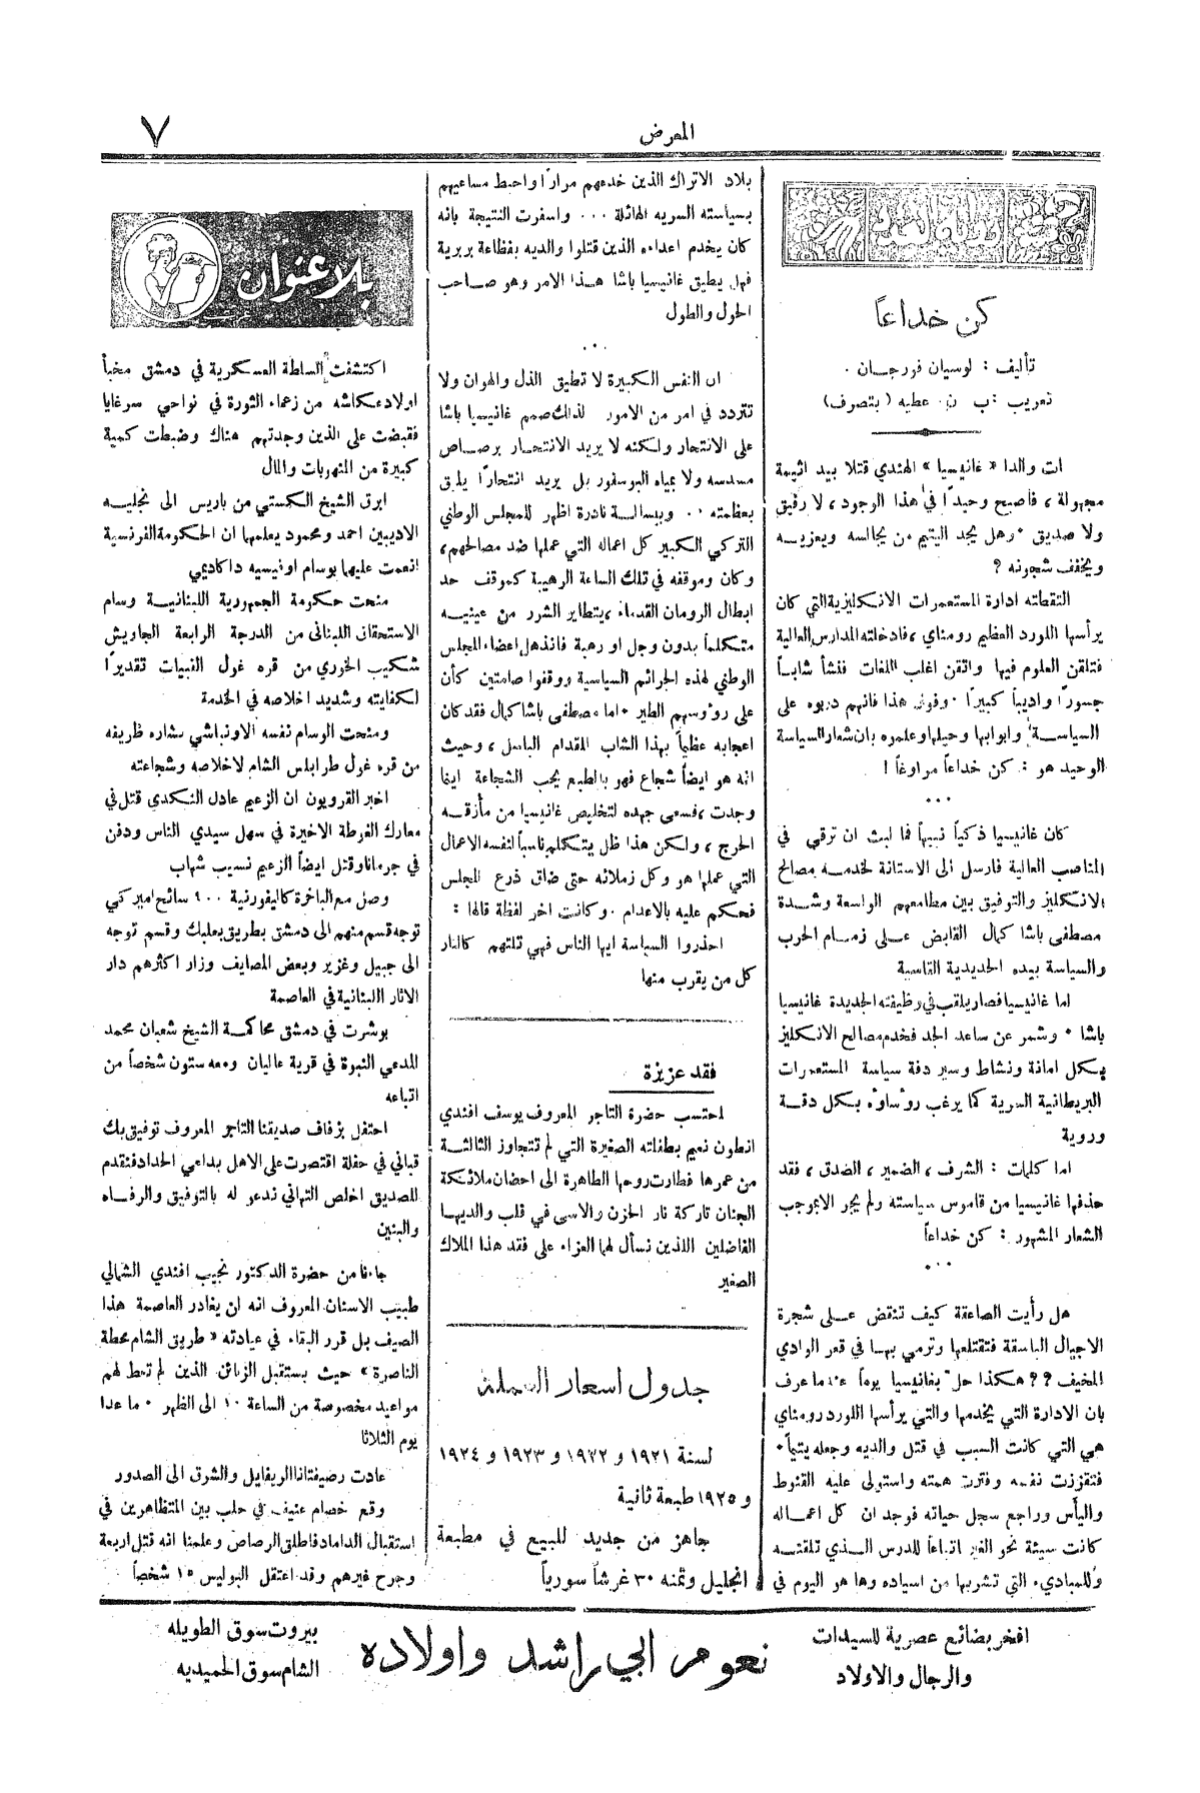 المعرض
٧
كن خداعاً
تأليف : لوسيان فورجان ·
تعريب : ب · ن · عطيه ( بتصرف )
ات والدا « غانيسيا » الهندي قتلا بيد اثيمة
مجهولة ، فاصبح وحيداً في هذا الوجود ، لا رفيق
ولا صديق · وهل يجد اليتيم من يجالسه ويعزيه
ويخفف شجونه ؟
التقطته ادارة المستعمرات الانكليزية التي كان
يرأسها اللورد العظيم رومناي ، فادخلته المدارس العالية
فتلقن العلوم فيها واتقن اغلب اللغات فنشأ شاباً
جسوراً واديباً كبيراً · وفوق هذا فانهم دربوه على
السياسة وابوابها وحيلها وعلموه بان شعار السياسة
الوحيد هو : كن خداعاً مراوغاً !
٠٠٠
كان غانيسيا ذكياً نبيهاً فما لبث ان ترقي في
المناصب العالية فارسل الى الاستانة لخدمه مصالح
الانكليز والتوفيق بين مطامعهم الواسعة وشدة
مصطفى باشا كمال القابض على زمام الحرب
والسياسة بيده الحديدية القاسية
اما غانيسيا فصار يلقب في وظيفته الجديدة غانيسيا
باشا · وشمر عن ساعد الجد فخدم مصالح الانكليز
بكل امانة ونشاط وسير دفة سياسة المستعمرات
البريطانية السرية كما يرغب رؤساوه بكل دقة
وروية
اما كلمات : الشرف ، الضمير ، الصدق ، فقد
حذفها غانيسيا من قاموس سياسته ولم يجر الا بموجب
الشعار المشهور : كن خداعاً
٠٠٠
هل رأيت الصاعقة كيف تنقض على شجرة
الاجيال الباسقة فتقتلعها وترمي بها في قعر الوادي
المخيف ؟؟ هكذا حل بغانيسيا يوماً عندما عرف
بان الادارة التي يخدمها والتي يرأسها اللورد رومناي
هي التي كانت السبب في قتل والديه وجعله يتيماً ·
فتقززت نفسه وفترت همته واستولى عليه القنوط
واليأس وراجع سجل حياته فوجد ان كل اعماله
كانت سيئة نحو الغير اتباعاً للدرس الذي تلقنه
وللمبادىء التي تشربها من اسياده وها هو اليوم في
بلاد الاتراك الذين خدعهم مراراً واحبط مساعيهم
بسياسته السريه الهائلة ... واسفرت النتيجة بانه
كان يخدم اعداءه الذين قتلوا والديه بفظاعة بربرية
فهل يطيق غانيسيا باشا هذا الامر وهو صاحب
الحول والطول
٠٠٠
ان النفس الكبيرة لا تطيق الذل والهوان ولا
تتردد في امر من الامور لذلك صمم غانيسيا باشا
على الانتحار ولكنه لا يريد الانتحار برصاص
مسدسه ولا بمياه البوسفور بل يريد انتحاراً يليق
بعظمته ٠٠ وببسالة نادرة اظهر للمجلس الوطني
التركي الكبير كل اعماله التي عملها ضد مصالحهم ،
وكان وموقفه في تلك الساعة الرهيبة كموقف حد
ابطال الرومان القدماء ، يتطاير الشرر من عينيه
متكلماً بدون وجل او رهبة فانذهل اعضاء المجلس
الوطني لهذه الجرائم السياسية ووقفوا صامتين كأن
على روءوسهم الطير · اما مصطفى باشا كمال فقد كان
اعجابه عظيماً بهذا الشاب المقدام الباسل ، وحيث
انه هو ايضاً شجاع فهو بالطبع يحب الشجاعة اينما
وجدت ، فسعى جهده لتخليص غانيسيا من مأزقه
الحرج ، ولكن هذا ظل يتكلم ناسباً لنفسه الاعمال
التي عملها هو وكل زملائه حتى ضاق ذرع المجلس
فحكم عليه بالاعدام · وكانت اخر لفظة قالها :
احذروا السياسة ايها الناس فهي تلتهم كالنار
كل من يقرب منها
فقد عزيزة
احتسب حضرة التاجر المعروف يوسف افندي
انطون نعيم بطفلته الصغيرة التي لم تتجاوز الثالثة
من عمرها فطارت روحها الطاهرة الى احضان ملائكة
الجنان تاركة نار الحزن والاسى في قلب والديها
الفاضلين اللذين نسأل لهما العزاء على فقد هذا الملاك
الصغير
جدول اسعار العملة
لسنة ١٩٢١ و ١٩٢٢ و ١٩٢٣ و ١٩٢٤
و ١٩٢٥ طبعة ثانية
جاهز من جديد للبيع في مطبعة
انجليل وثمنه ٣٠ غرشاً سورياً
بلا عنوان
اكتشفت السلطة العسكرية في دمشق مخبأ
اولاد عكاشه من زعماء الثورة في نواحي سرغايا
فقبضت على الذين وجدتهم هناك وضبطت كمية
كبيرة من المنهوبات والمال
ابرق الشيخ الكستي من باريس الى نجليه
الاديبين احمد ومحمود يعلمها ان الحكومة الفرنسية
انعمت عليها بوسام اوفيسيه داكاديمي
منحت حكومة الجمهورية اللبنانية وسام
الاستحقاق اللبناني من الدرجة الرابعة الجاويش
شكيب الخوري من قره غول النبيات تقديراً
لكفايته وشديد اخلاصه في الخدمة
ومنحت الوسام نفسه الاونباشي بشاره ظريفه
من قره غول طرابلس الشام لاخلاصه وشجاعته
اخبر القرويون ان الزعيم عادل النكدي قتل في
معارك الغوطة الاخيرة في سهل سيدي الناس ودفن
في جرمانا وقتل ايضاً الزعيم نسيب شهاب
وصل مع الباخرة كاليفورنية ٩٠٠ سائح اميركي
توجه قسم منهم الى دمشق بطريق بعلبك وقسم توجه
الى جبيل وغزير وبعض المصايف وزار اكثرهم دار
الاثار اللبنانية في العاصمة
بوشرت في دمشق محاكمة الشيخ شعبان محمد
المدعي النبوة في قرية عاليان ومعه ستون شخصاً من
اتباعه
احتفل بزفاف صديقنا التاجر المعروف توفيق بك
قباني في حفلة اقتصرت على الاهل بداعي الحداد فنقدم
للصديق اخلص التهاني ندعو له بالتوفيق والرفاه
والبنين
جاءنا من حضرة الدكتور نجيب افندي الشمالي
طبيب الاسنان المعروف انه ان يغادر العاصمة هذا
الصيف بل قرر البقاء في عيادته « طريق الشام محطة
الناصرة » حيث يستقبل الزبائن الذين لم تعط لهم
مواعيد مخصوصة من الساعة ١٠ الى الظهر · ما عدا
يوم الثلاثا
عادت رصيفتانا الريفايل والشرق الى الصدور
وقع خصام عنيف في حلب بين المتظاهرين في
استقبال الداماد فاطلق الرصاص وعلمنا انه قتل اربعة
وجرح غيرهم وقد اعتقل البوليس ١٥ شخصاً
افخر بضائع عصرية للسيدات
والرجال والاولاد
نعوم ابي راشد واولاده
بيروت سوق الطويله
الشام سوق الحميديه